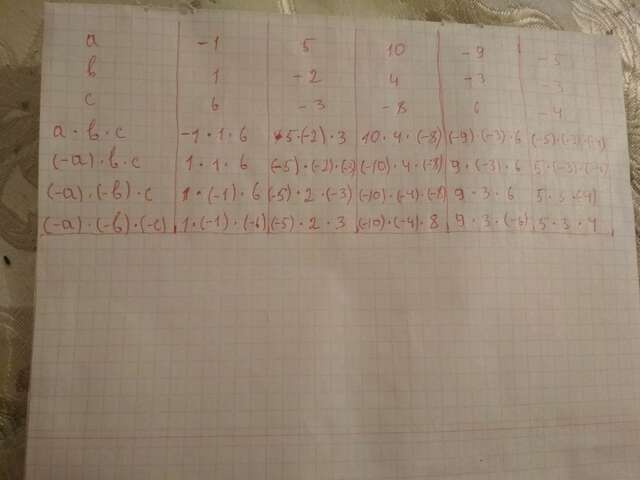 a -1 5 10 -9 -5
b 1 -2 4 -3 -3
c 6 -3 -8 6 -4
a·b·c -1·1·6 5·(-2)·3 10·4·(-8) (-9)·(-3)·6 (-5)·(-3)·(-4)
(-a)·b·c 1·1·6 (-5)·(-2)·(-3) (-10)·4·(-8) 9·(-3)·6 5·(-3)·(-4)
(-a)·(-b)·c 1·(-1)·6 (-5)·2·(-3) (-10)·(-4)·(-8) 9·3·6 5·3·(-4)
(-a)·(-b)·(-c) 1·(-1)·(-6) (-5)·2·3 (-10)·(-4)·8 9·3·(-6) 5·3·4